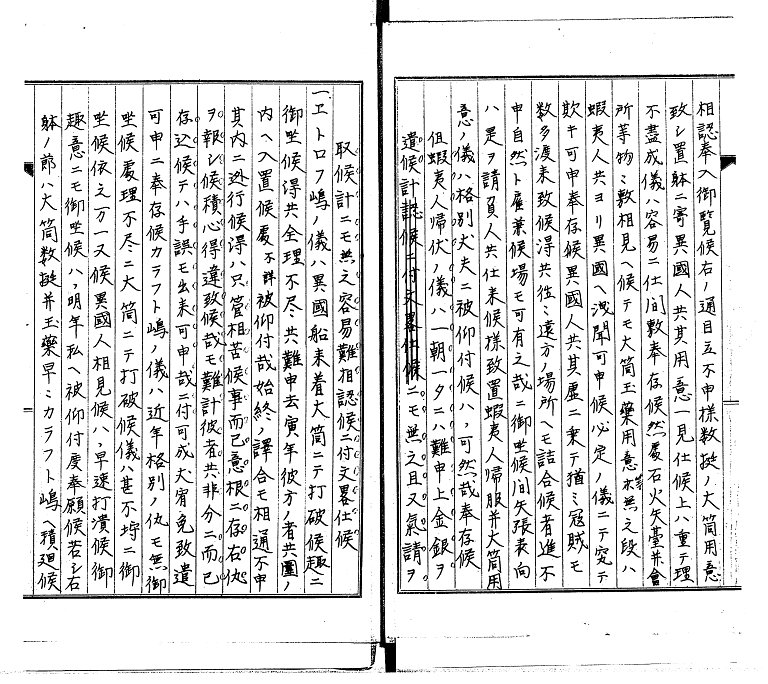 相認奉入御覧候右ノ通目立不申様数挺ノ大筒用意
致シ置躰ニ寄異國人共其用意一見仕候上ハ重テ理
不盡成儀ハ容易ニ仕間敷奉存候然處石火矢臺并會
所等物ミ敷相見ヘ候テモ大筒玉薬用意等無之段ハ
蝦夷人共ヨリ異國ヘ洩聞可申候必定ノ儀ニテ究テ
欺キ可申奉存候異國人共其虚ニ乗テ猶ミ冦賊モ
数多渡来致候得共往ミ遠方ノ場所ヘモ詰合候者進不
申自然ト雇業候場モ可有之哉ニ御坐候間矢張表向
ハ是ヲ請負人共仕来候様致置蝦夷人帰服并大筒用
意ノ儀ハ格別大夫ニ被仰付候ハヽ可然哉奉存候
但蝦夷人帰伏ノ儀ハ一朝一夕ニハ難申上金銀ヲ
遣候計認候ニ付文畧仕候ニモ無之且又氣請ヲ
取候計ニモ無之容易難相認候ニ付文畧仕候
一ヱトロフ嶋ノ儀ハ異國船来着大筒ニテ打破候趣ニ
御坐候得共全理不尽共難申去寅年彼方ノ者共圍ノ
内ヘ入置候處不詳被仰付哉始終ノ譯合モ相通不申
其内ニ迯行候得ハ只管相苦候事而已意根ニ存右仇
ヲ報シ候積心得違致候哉モ難計彼者共非分ニ而已
存込候テハ手誤モ出来可申哉ニ付可成丈宥免致遣
可申ニ奉存候カラフト嶋ノ儀ハ近年格別ノ仇モ無御
坐候處理不尽ニ大筒ニテ打破候儀ハ甚不埒ニ御
坐候依之万一又候異國人相見候ハヽ早速打潰候御
趣意ニモ御坐候ハヽ明年私ヘ被仰付度奉願候若シ右
躰ノ節ハ大筒数挺并玉薬早ミカラフト嶋ヘ積廻候